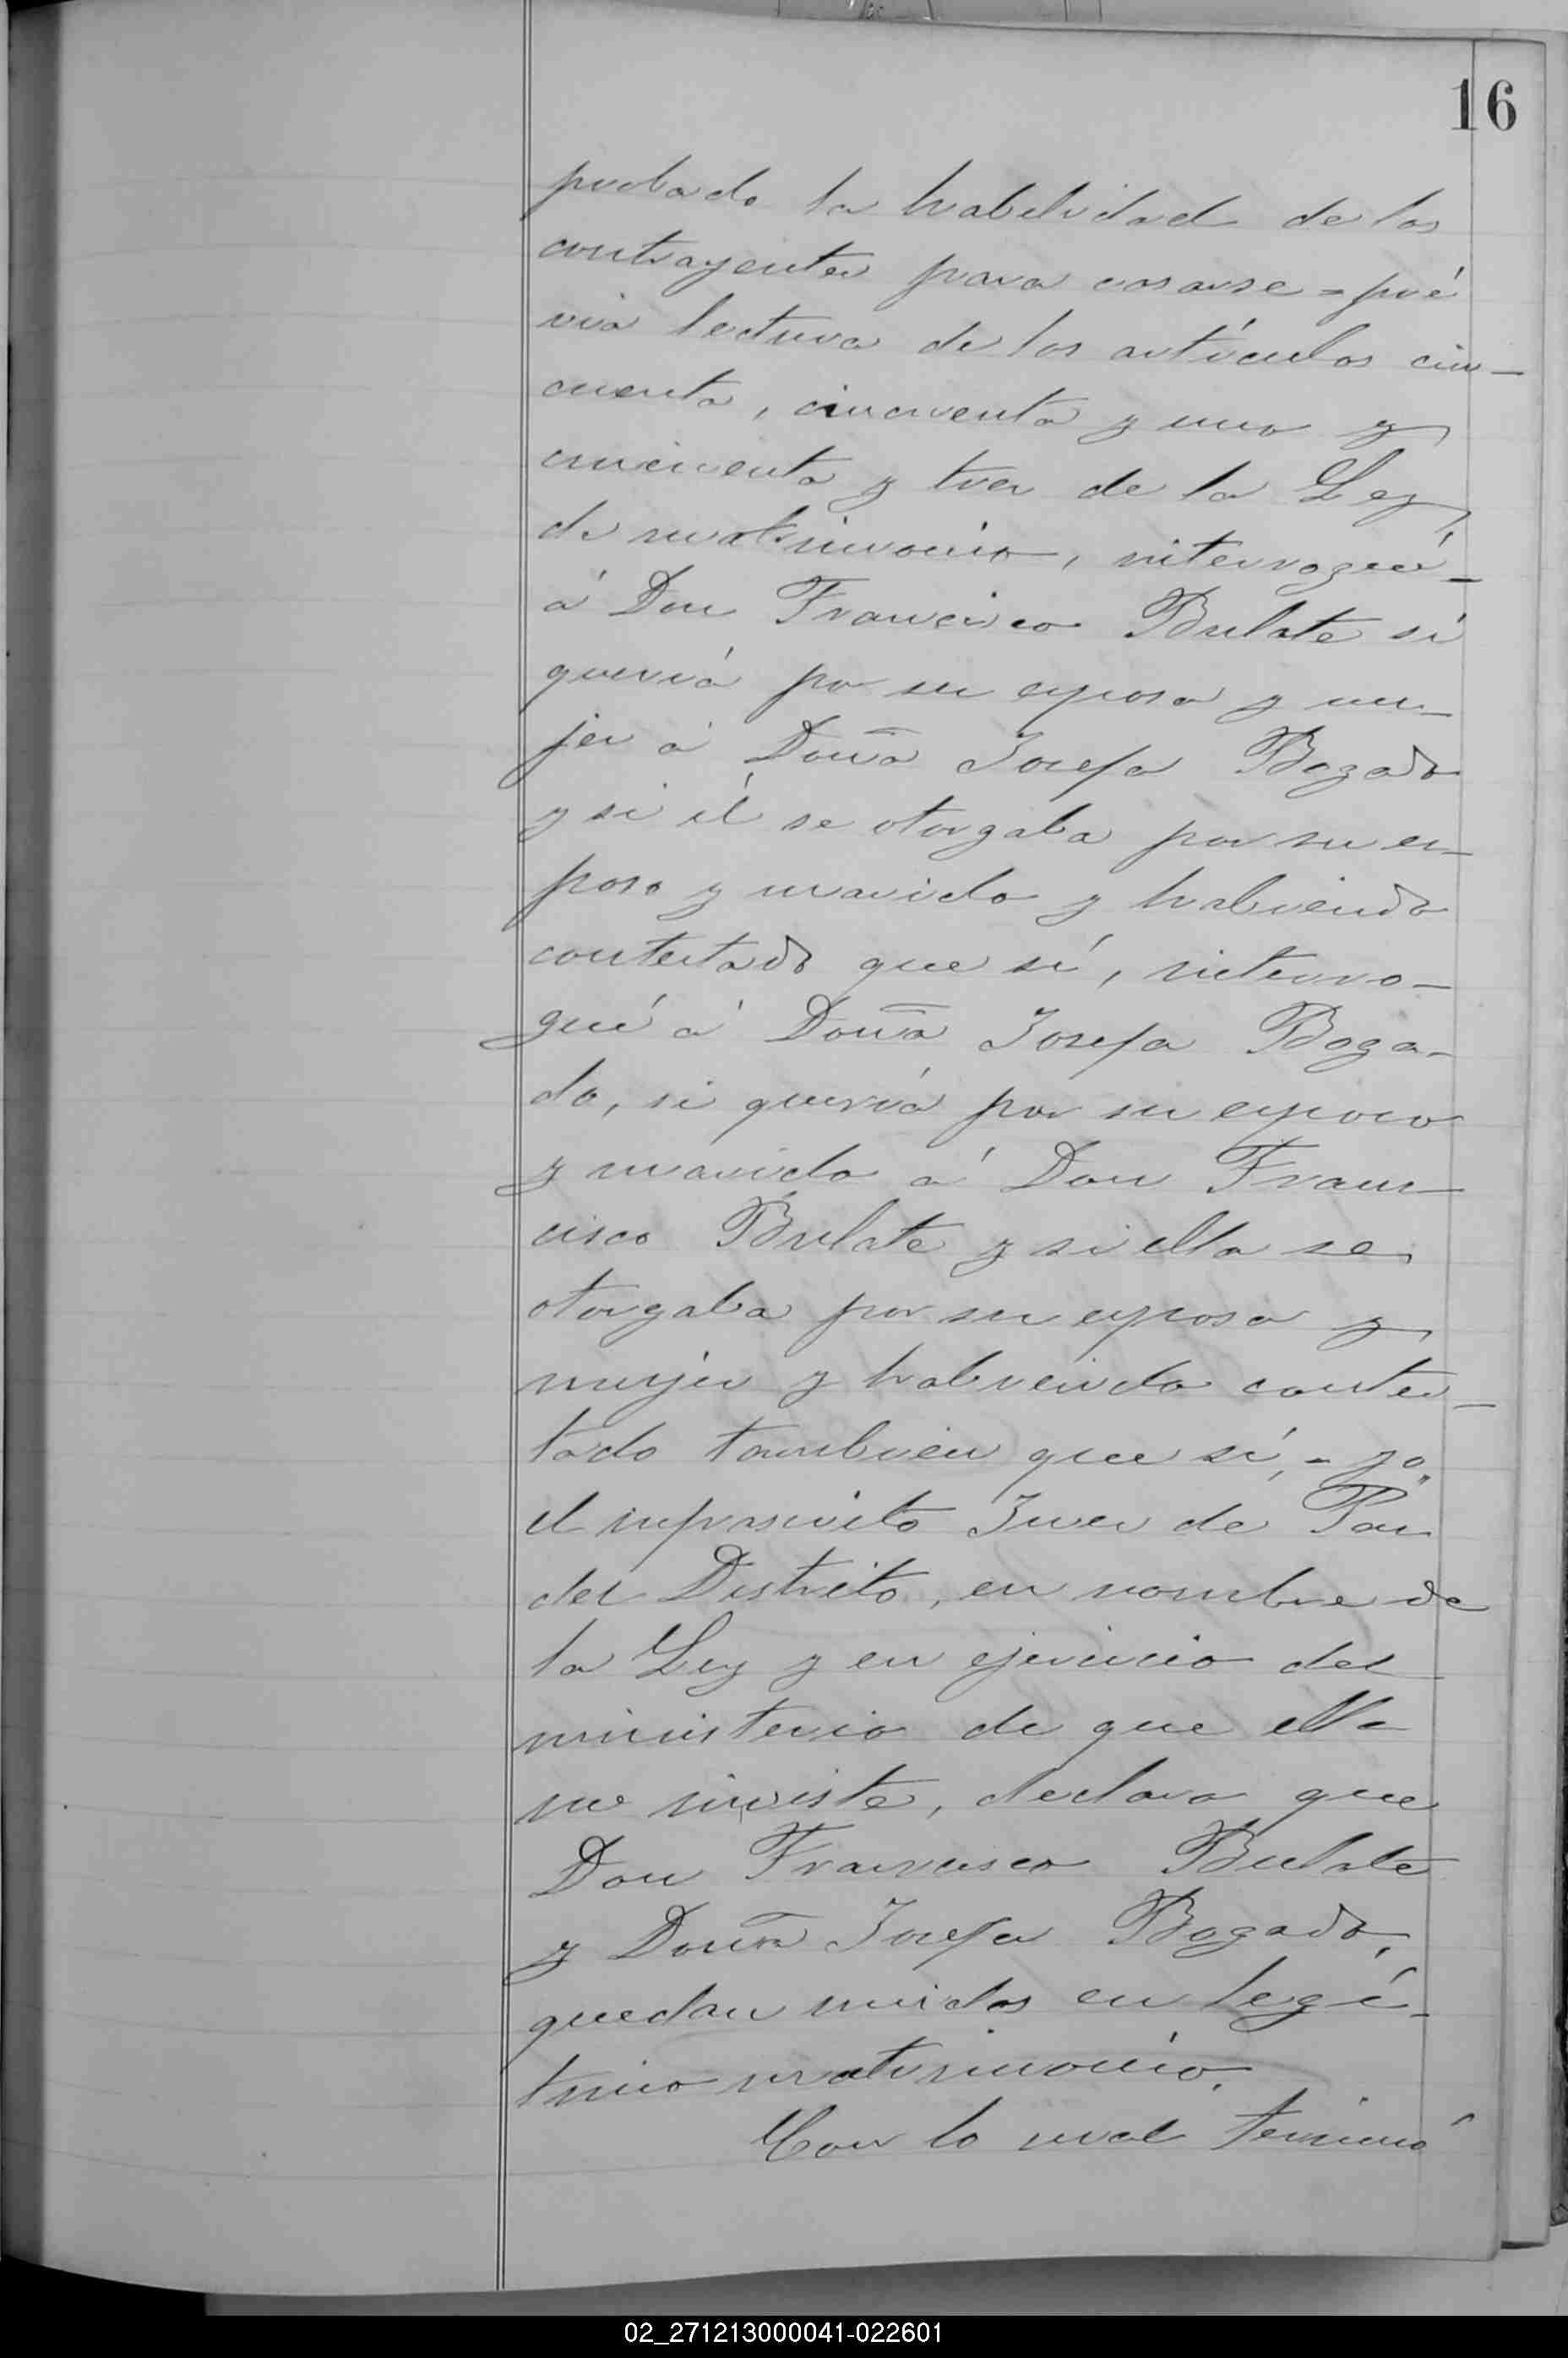 16
probado la habilidad de los
contrayentes para casarse = pré
via lectura de los artículos cin-
cuenta, cincuenta y uno y
cincuenta y tres de la Ley
de matrimonio, interrogué-
á Don Francisco Brulate si
quería por su esposa y mu-
jer á Doña Josefa Bogado
y si él se otorgaba por su es-
poso y marido y habiendo
contestado que sí, interro-
gué á Doña Josefa Boga-
do, si quería por su esposo
y marido á Don Fran-
cisco Brulate y si ella se
otorgaba por su esposa y
mujer y habiendo contes-
tado tambien que sí, - yo
el infrascrito Juez de Paz
del Distrito, en nombre de
la Ley y en ejercicio del
ministerio de que ella
me inviste, declaro que
Don Francisco Brulate
y Doña Josefa Bogado,
quedan unidos en legí-
timo matrimonio.
Con lo cual terminó
02_271213000041-022601